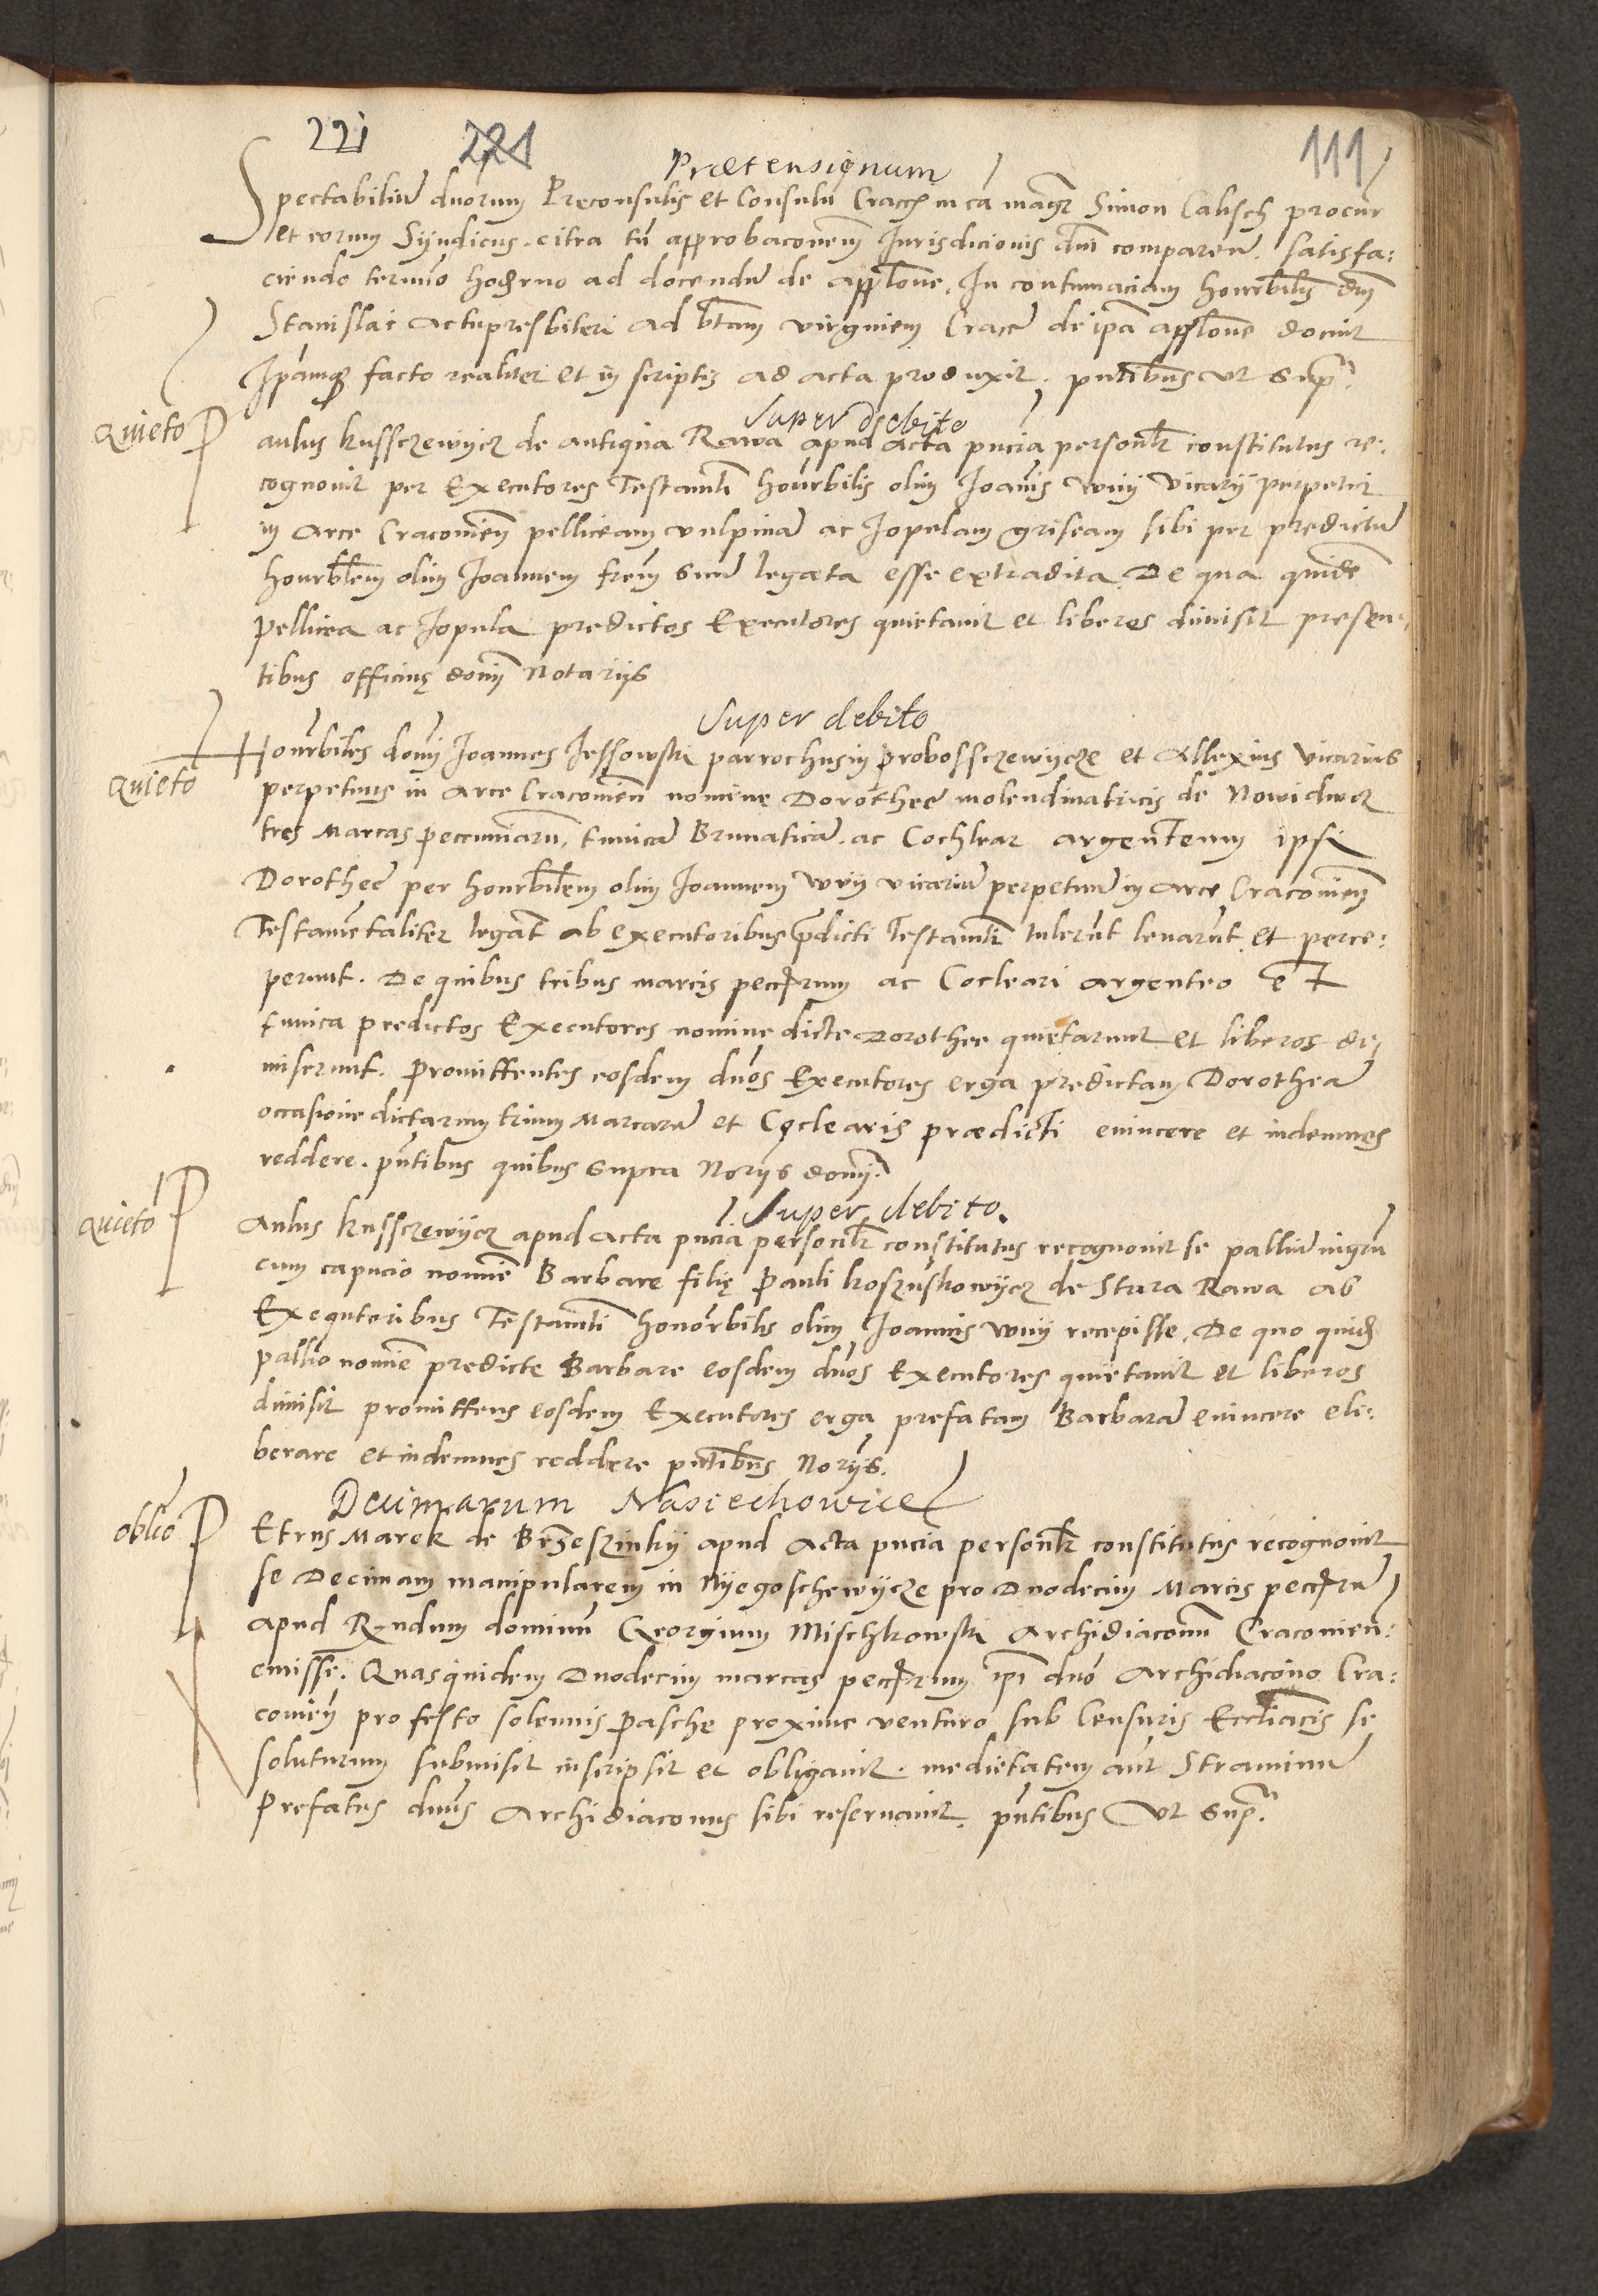 22j 221 111
Prætensignum
Spectabiliu dnorum Preconsulis et Consulu Cracc in ca magr Simon Calisch procur
et eorum Syndicus. citra tn approbaconem Jurisdicionis dni comparen. satisfa:
ciendo termno hodierno ad docendu de applone. In contumaciam honrbilis dni
Stanislai Actupresbiteri ad btam virginem Crace de ipa applone docuit
Ipamq facto realiter et in scriptis ad acta produxit. pntibus vt supr
Super debito
quieto Paulus kusszewycz de antiqua Rawa apud acta pncia personlr constitutus re:
cognouit per Executores Testamti honrbilis olim Joannis wuy vicarij perpetui
in Arce Cracouien pelliceam vulpina ac Jopulam griseam sibi per predictu
honrblem olim Joannem frem suu legata esse extradita. De qua quide
pellicea ac Jopula predictos Executores quietauit et liberos dimisit presen,
tibus officiuȩ domi Notarijs
Super debito
quieto Honrbiles domi Joannes Jessowski parrochus in probosczewycze et Allexius vicarius
perpetuus in Arce Cracouien nomine Dorothee molendinatricis de Nowidwor
tres Marcas pecuniaru, tunica Brunatica. ac Cochlear argenteum ipsi
Dorothee per honrbilem olim Joannem wuy vicariu perpetuu in Arce Cracouien
Testamentaliter legat ab executoribus pdicti Testamti tulerut leuarut et perce:
perunt. De quibus tribus marcis peccarum ac Cocleari argenteo et
tunica predictos Executores nomine dicte Dorothee quietarunt et liberos di,
miserunt. Promittentes eosdem dnos Executores erga predictam Dorothea
occasione dictarum trium Marcaru et Coclearis prædicti euincere et indemnes
reddere. pntibus quibus supra Norijs domi
Super debito.
quieto Paulus kusszewycz apud Acta pncia personlr constitutus recognouit se palliu nigru
cum capucio nomine Barbare filiȩ Pauli koszuskowycz de Stara Rawa ab
Exequtoribus Testamti honorbilis olim Joannis wuy recepisse. De quo quid
pallio nomine predicte Barbare eosdem dnos Executores quietauit et liberos
dimisit promittens eosdem Executores erga prefatam Barbara euincere eli:
berare et indemnes reddere pntibus Norijs.
Decimarum Nasiechowice
oblio Petrus Marek de Brzeszinky apud Acta pncia personlr constitutus recognouit
se Decimam manipularem in Nyegoschewycze pro Duodecim Marcis peccaru
apud Rndum dominu Georgium Mischkowski Archidiaconu Cracouien:
emisse. Quas quidem Duodecim marcas peccarum ipi dno Archidiacono Cra:
couien pro festo solennis Pasche proxime venturo sub Censuris Eccliacis se
soluturum submisit inscripsit et obligauit. medietatem aut Straminu
Prefatus dnus Archidiaconus sibi reseruauit. pntibus vt supr